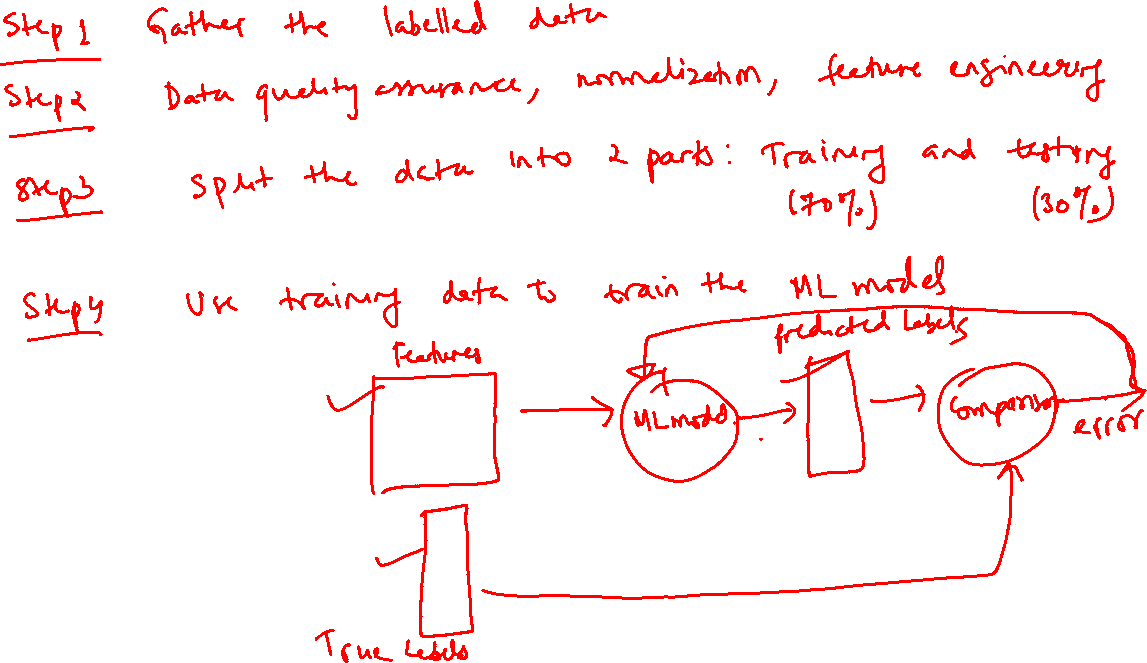 Step 1 Gather the labelled data
Step2 Data quality assurance, normalization, feature engineering
Step3 Split the data into 2 parts: Training and testing
(70%) (30%)
Step4 Use training data to train the ML model
predicted Labels
Features
ML model
Comparison
error
True Labels